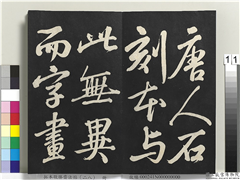 唐人石
刻本与
此無異
而字畫
11